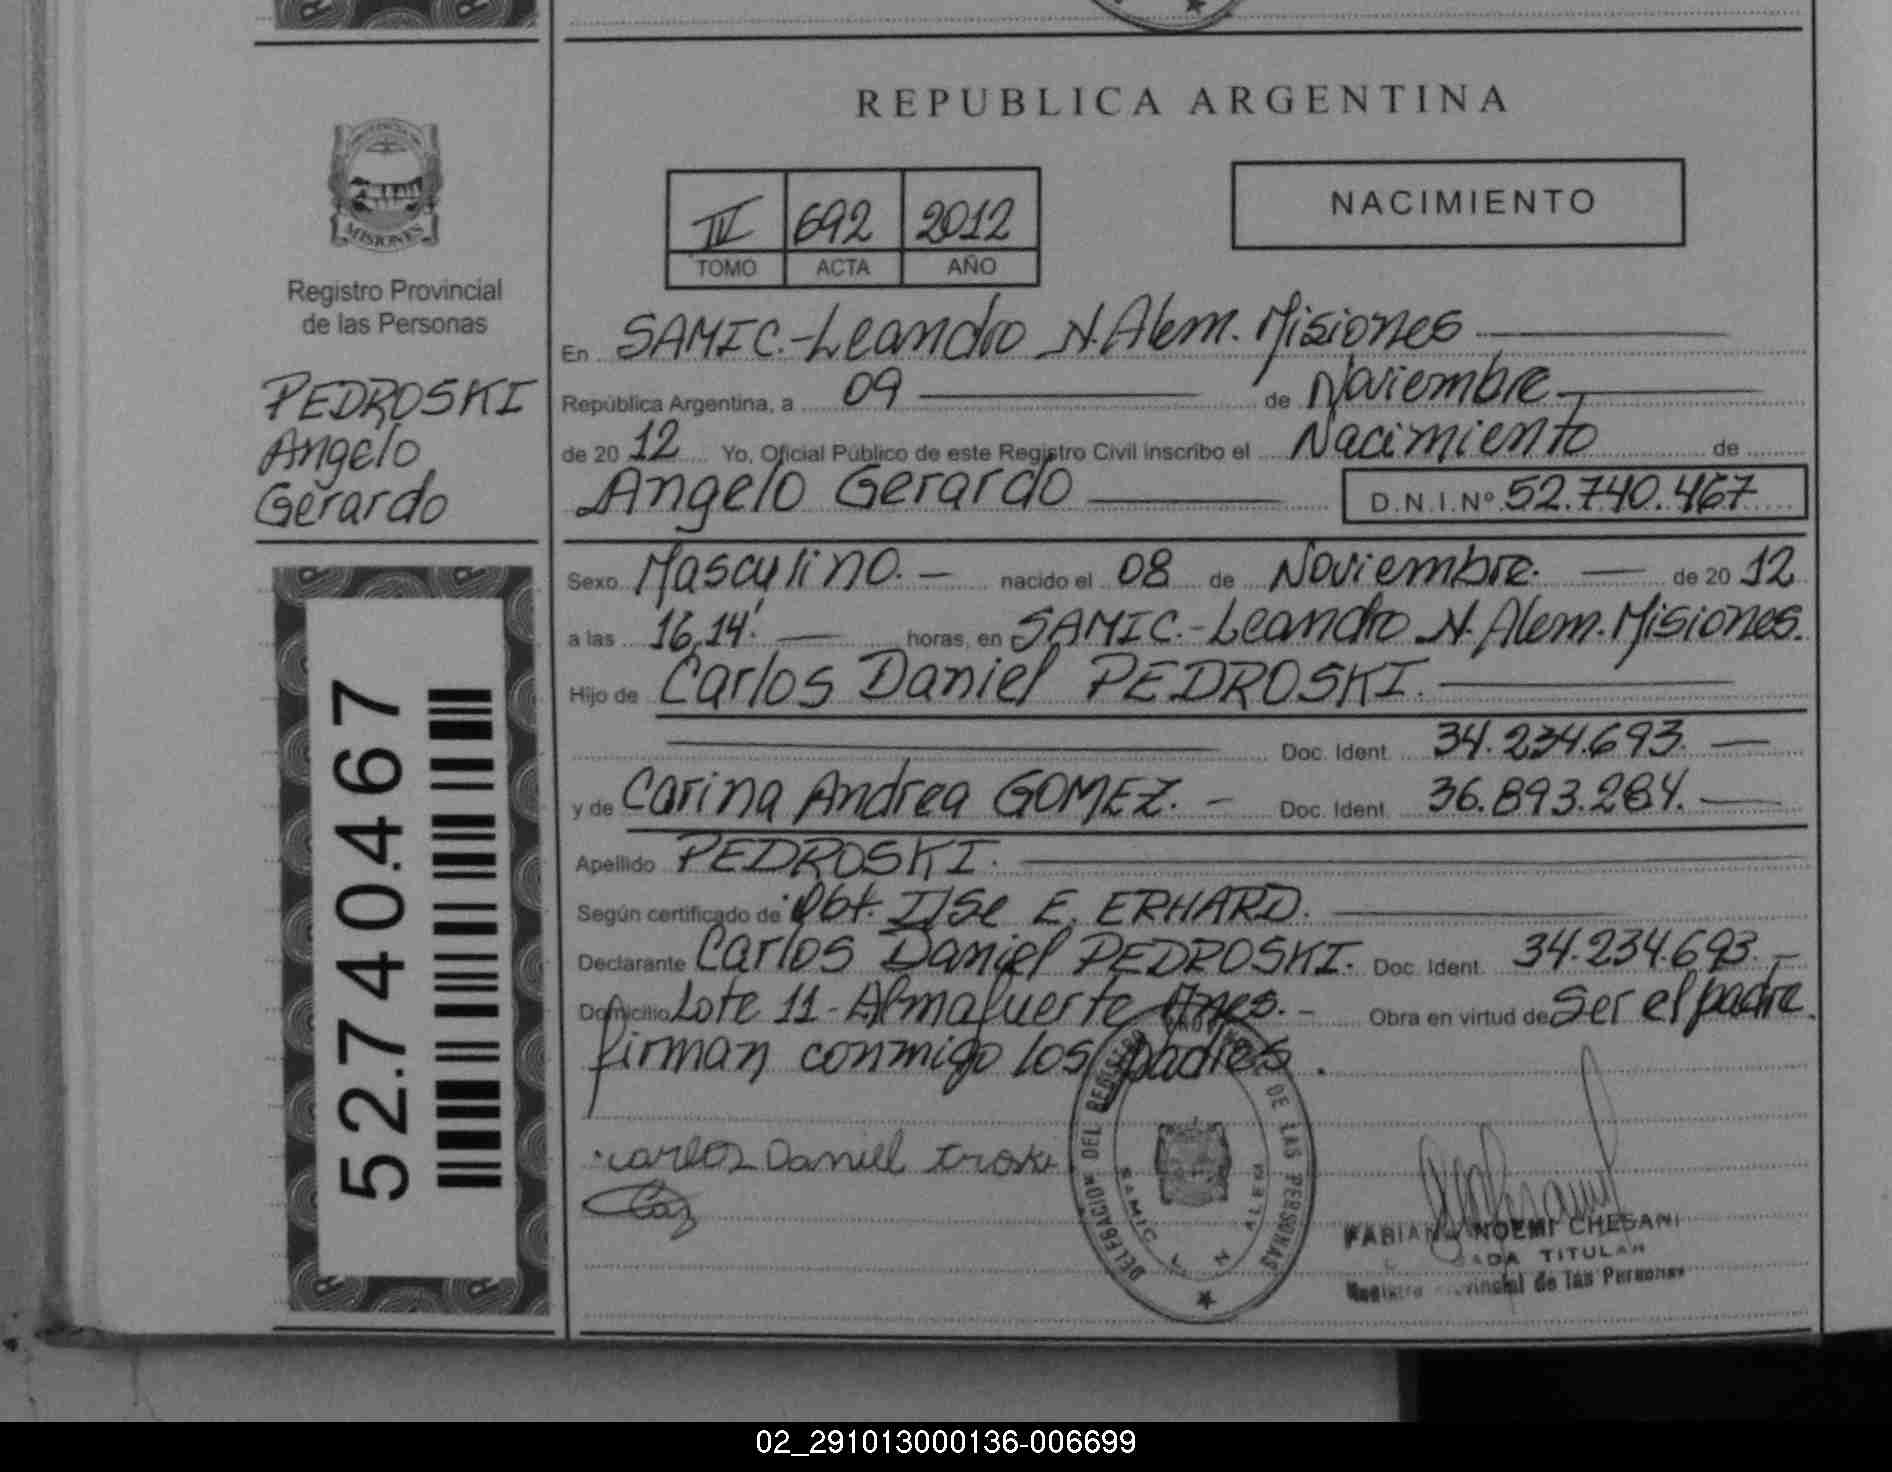 REPUBLICA ARGENTINA
PROVINCIA DE
MISIONES
Registro Provincial
de las Personas
PEDROSKI
Angelo
Gerardo
52.740.467
IV 692 2012
TOMO ACTA AÑO
NACIMIENTO
En SAMIC.-Leandro N. Alem. Misiones
República Argentina, a 09 de Noviembre
de 2012 Yo, Oficial Público de este Registro Civil inscribo el Nacimiento de
Angelo Gerardo D.N.I.Nº 52.740.467
Sexo Masculino.- nacido el 08 de Noviembre. de 2012
a las 16,14'. horas, en SAMIC.-Leandro N. Alem. Misiones.
Hijo de Carlos Daniel PEDROSKI.
Doc. Ident. 34.234.693.
y de Carina Andrea GOMEZ.- Doc. Ident. 36.893.284.
Apellido PEDROSKI.
Según certificado de Obt. Ilse E. ERHARD.
Declarante Carlos Daniel PEDROSKI. Doc. Ident. 34.234.693.-
Domicilio Lote 11-Almafuerte Mnes.- Obra en virtud de ser el padre.
firman conmigo los padres.
Carlos Daniel
DELEGACION DEL REGISTRO DE LAS PERSONAS
SAMIC L. N. ALEM
FABIANA NOEMI CHESANI
TITULAR
Provincial de las Personas
02_291013000136-006699